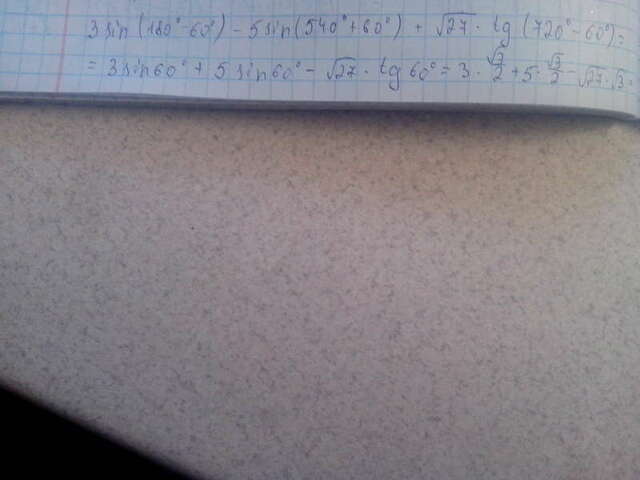 3 sin (180° - 60°) - 5 sin (540° + 60°) + √27 · tg (720° - 60°) =
= 3 sin 60° + 5 sin 60° - √27 · tg 60° = 3 · √3/2 + 5 · √3/2 - √27 · √3 =